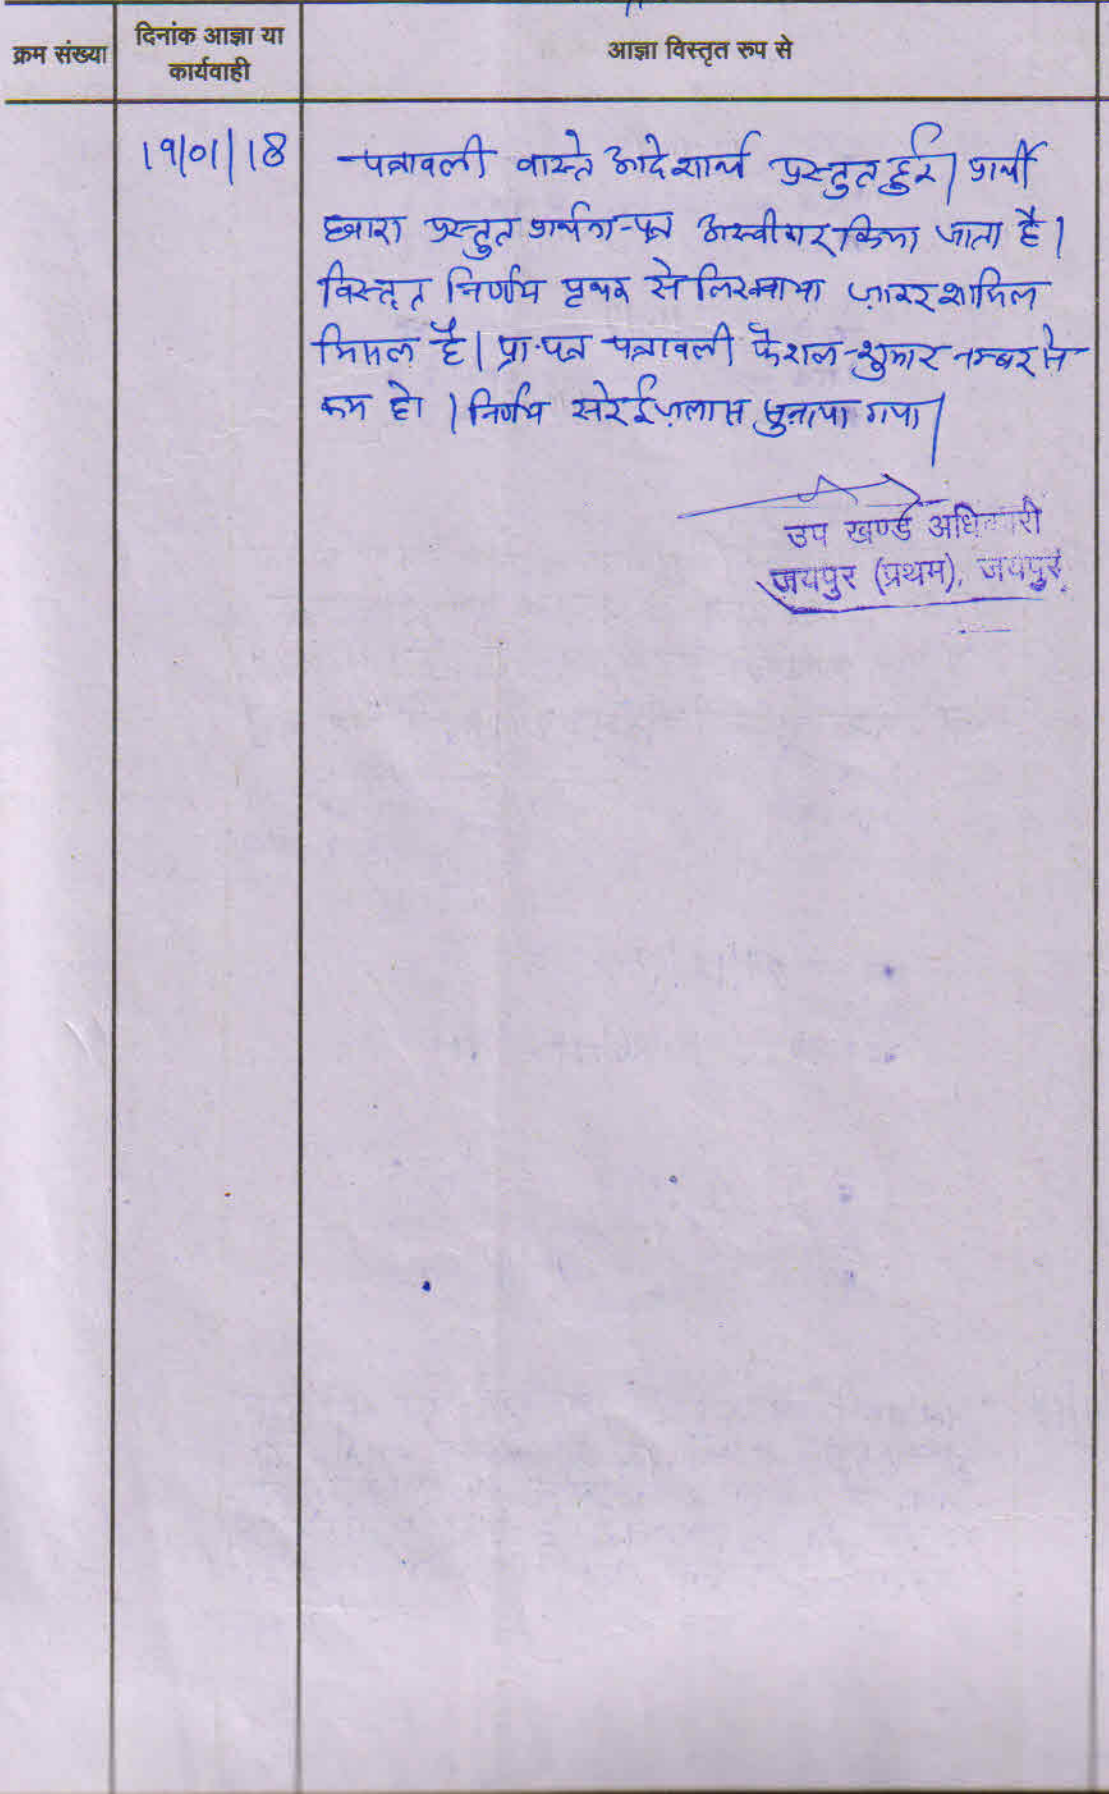 क्रम संख्या
दिनांक आज्ञा या
कार्यवाही
आज्ञा विस्तृत रुप से
19/01/18
पत्रावली वास्ते आदेशार्थ प्रस्तुत हुई। प्रार्थी
द्वारा प्रस्तुत प्रार्थना-पत्र अस्वीकार किया जाता है।
विस्तृत निर्णय पृथक से लिखवाया जाकर शामिल
मिसल है। प्रा.पत्र पत्रावली फैशल शुमार नम्बर से
कम हो। निर्णय सरे ईजलास सुनाया गया।
उप खण्ड अधिकारी
जयपुर (प्रथम), जयपुर